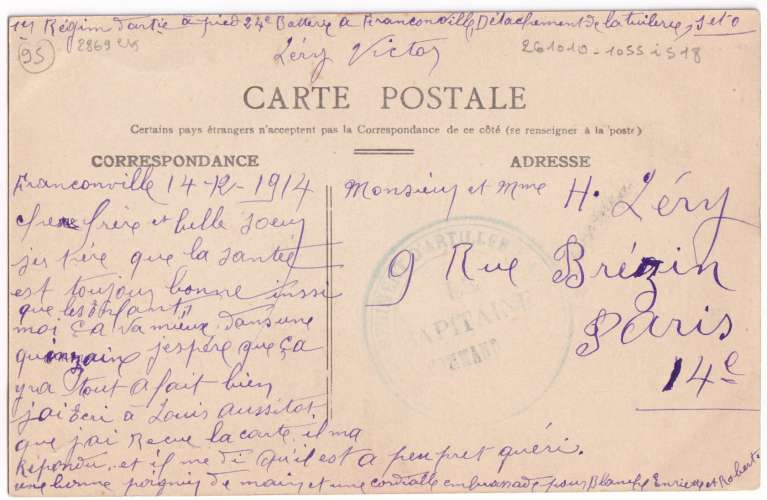 1er Régim d'artie à pied 24e Batterie à Franconville, Détachement de la tuilerie, S et O
95
2869
Léry Victor
261010-1055 i S18
CARTE POSTALE
Certains pays étrangers n'acceptent pas la Correspondance de ce côté (se renseigner à la poste)
CORRESPONDANCE
Franconville 14-12-1914
cher frère et belle soeur
jes père que la santée
est toujour bonne inssi
que les enfants
moi ça va mieux dans une
quinzaine j'espère que ça
yra tout a fait bien
j'ai écri à Louis aussitot
que j'ai recue la carte, il ma
répondu et il me di qu'il est a peu pret quéri.
une bonne poignés de mains et une cordialle embrassade pour Blanche Enriette et Roberte
ADRESSE
Monsieur et Mme H. Léry
9 Rue Brézin
Paris
14e
ARTILLER
CAPITAINE